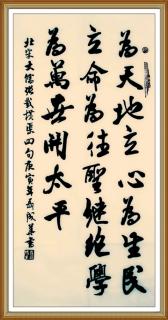 为天地立心為生民
立命為往聖継绝學
為萬世開太平
北宋大儒張載横渠四句庚寅年